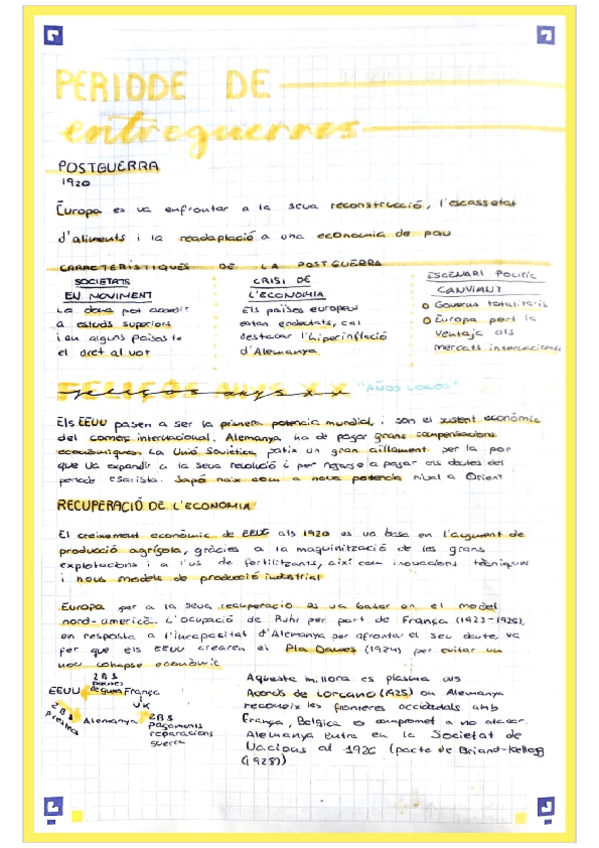 PERIODE DE
entreguerres
POSTGUERRA
1920
Europa es va enfrontar a la seua reconstrucció, l'escassetat
d'aliments i la readaptació a una economia de pau
CARACTERÍSTIQUES DE LA POSTGUERRA
SOCIETATS
EN MOVIMENT
La dona pot accedir
a estudis superiors
i en alguns països te
el dret al vot
CRISI DE
L'ECONOMIA
Els països europeus
estan endeutats, cal
destacar l'hiperinflació
d'Alemanya.
ESCENARI POLÍTIC
CANVIANT
Governs totalitaris
Europa pert la
ventaja als
mercats internacionals
FELIÇOS ANYS XX "AÑOS LOCOS"
Els EEUU pasen a ser la primera potencia mundial i son el sustent econòmic
del comerç internacional. Alemanya ha de pagar grans compensacions
econòmiques. La Unió Soviètica patix un gran aïllament per la por
que va expandir a la seua revolució i per negarse a pagar els deutes del
periode tsarista. Japó naix com a nova potencia rival a Orient
RECUPERACIÓ DE L'ECONOMIA
El creixement econòmic de EEUU als 1920 es va basa en l'augment de
producció agrícola, gràcies a la maquinització de les grans
explotacions i a l'us de fertilitzants, així com inovacions tècniques
i nous models de producció industrial
Europa per a la seua recuperació es va basar en el model
nord-americà. L'ocupació de Ruhr per part de França (1923-1925),
en resposta a l'incapacitat d'Alemanya per afrontar el seu deute, va
fer que els EEUU crearen el Pla Dawes (1924) per evitar un
nou colapse econòmic
2 B $
deutes
de guerra
EEUU França
UK
2 B $
prestecs
Alemanya
2 B $
pagaments
reparacions
guerra
Aquesta millora es plasma als
Acords de Lorcano (1925) on Alemanya
reconeix les fronteres occidetals amb
França, Belgica es compromet a no atacar.
Alemanya entra en la Societat de
Nacions al 1926 (pacte de Briand-Kellogg
(1928))